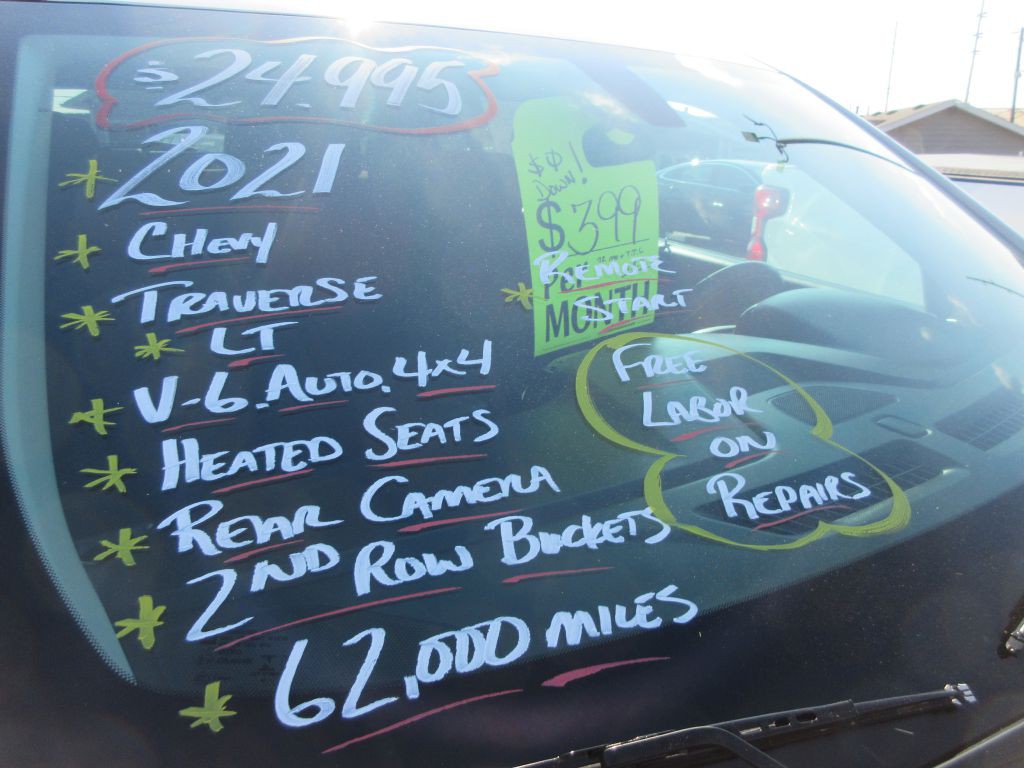 $24.995
2021
CHEVY
TRAVERSE
LT
V-6. AUTO. 4x4
HEATED SEATS
REAR CAMERA
2ND ROW BUCKETS
62,000 MILES
$0
DOWN!
$399
PER
MONTH
REMOTE
START
FREE
LABOR
ON
REPAIRS